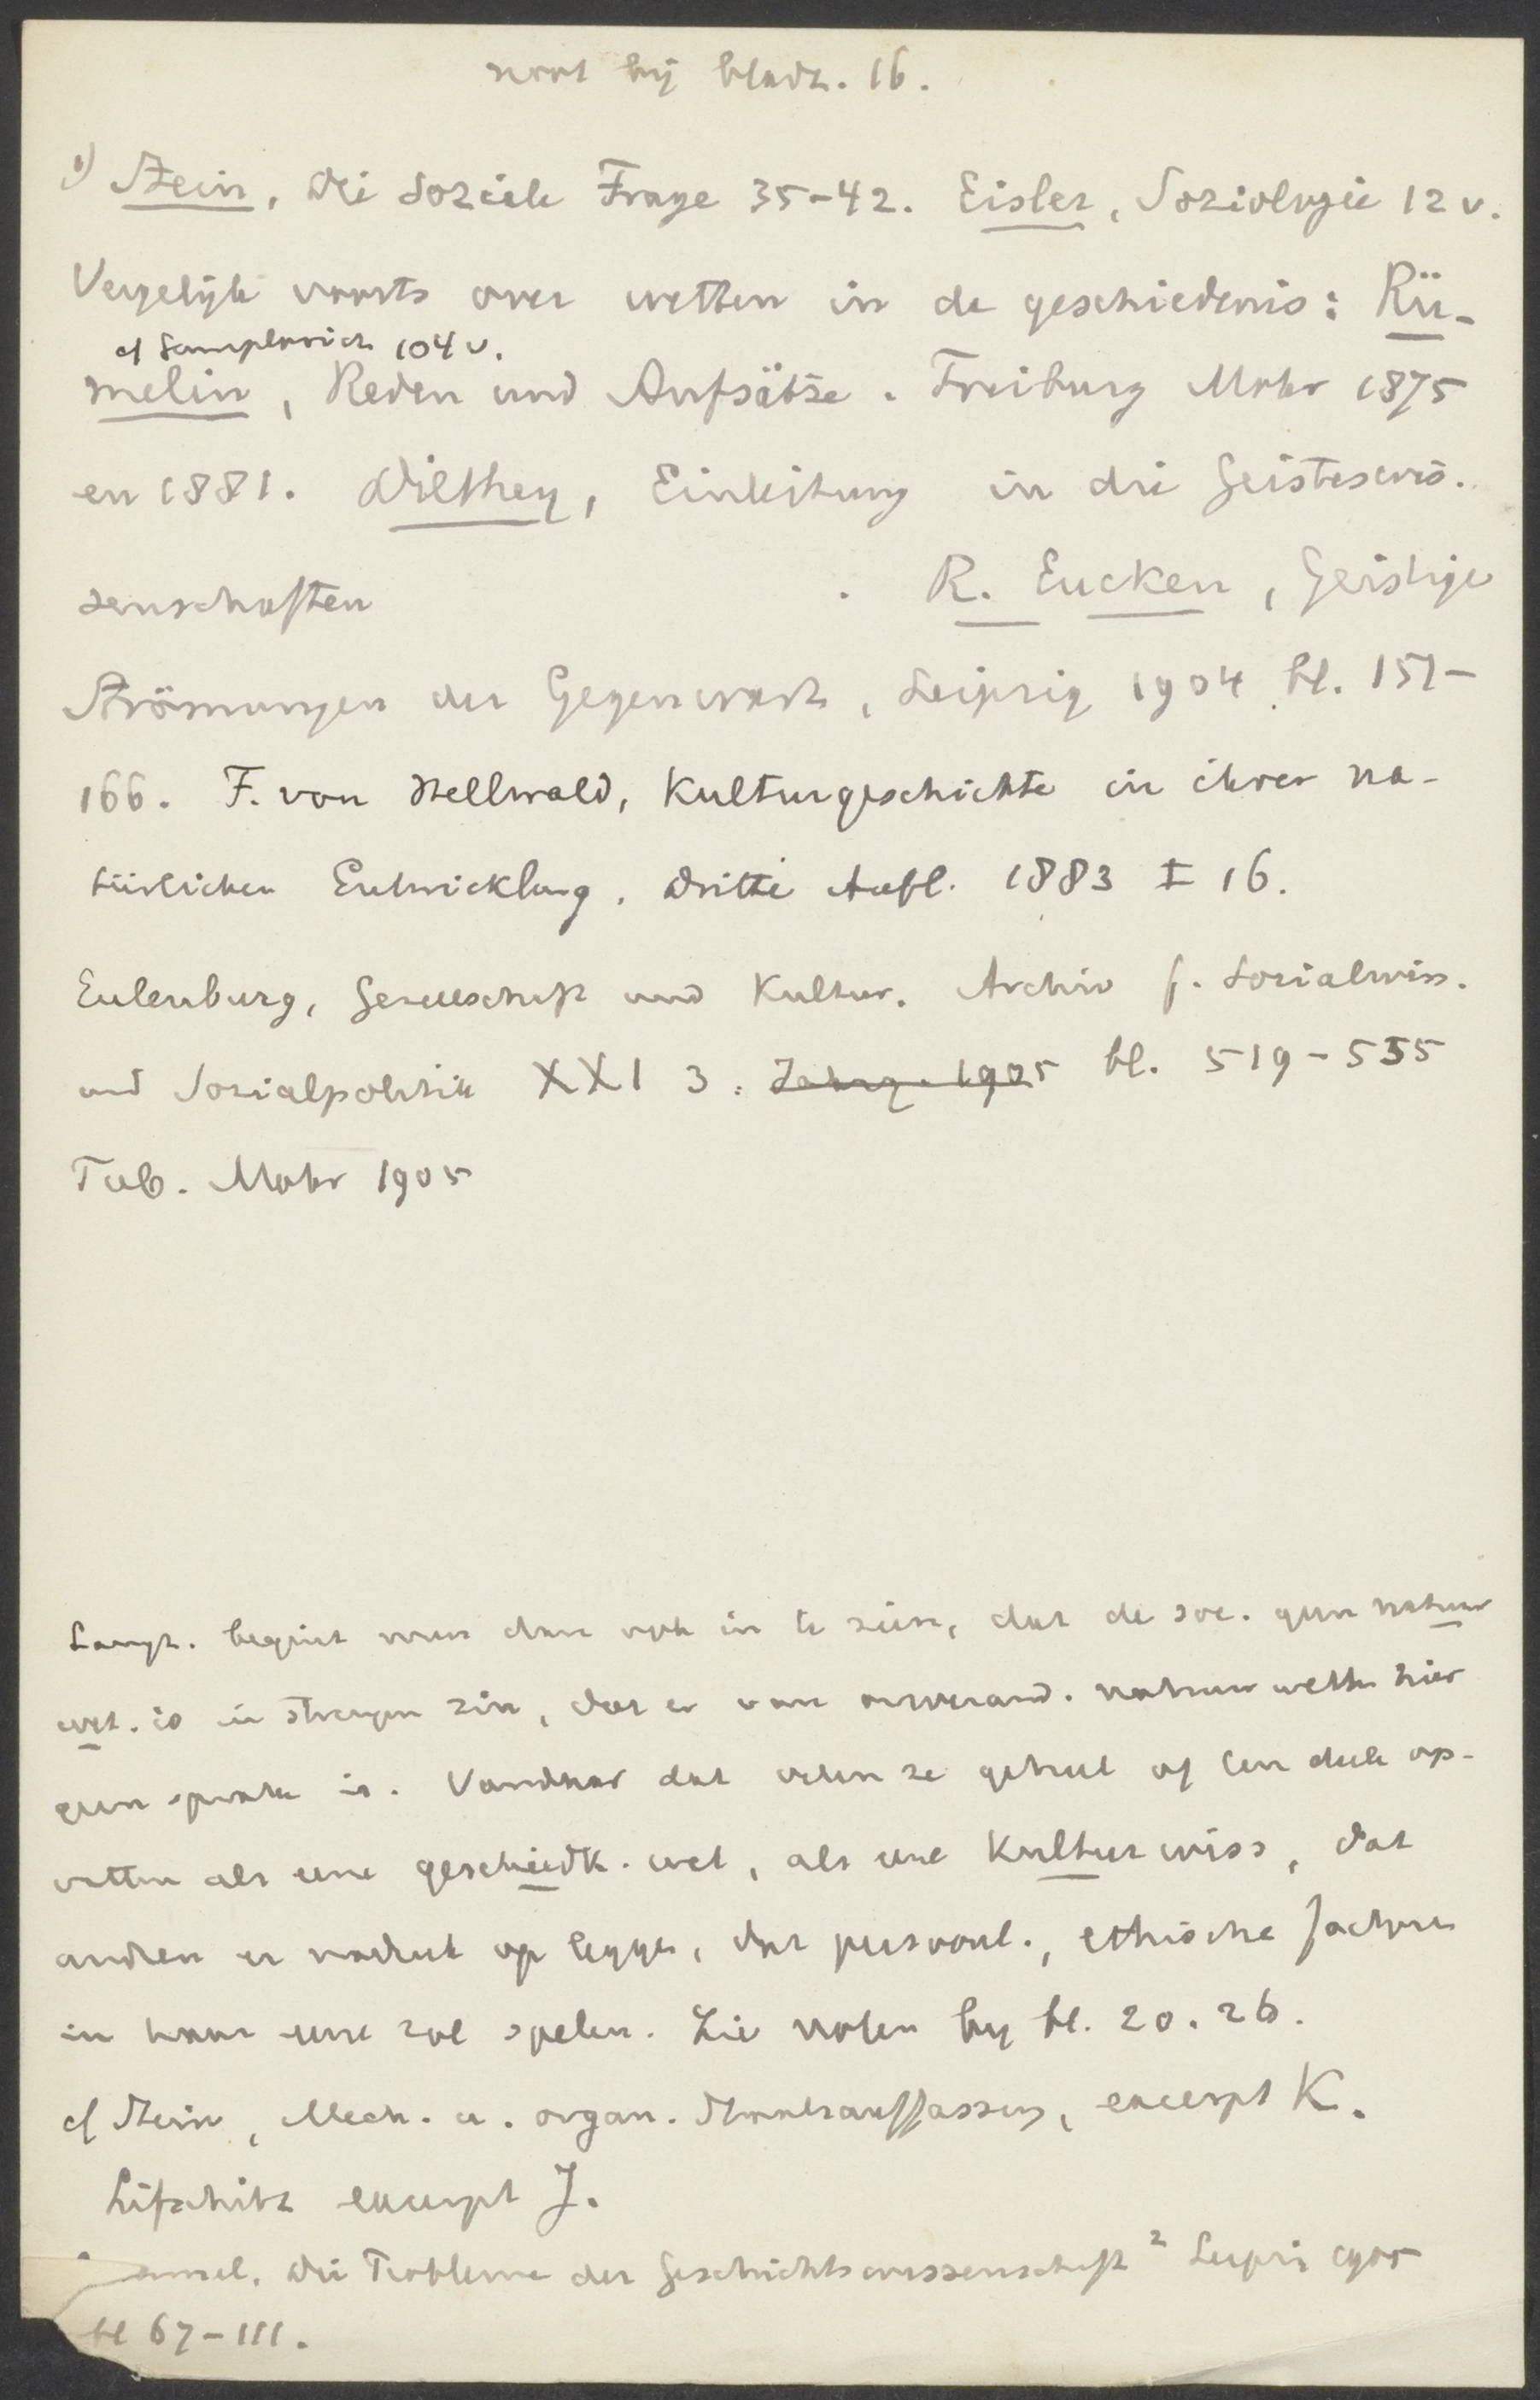 noot bij bladz. 16.
1) Stein, Die Soziale Frage 35-42. Eisler, Soziologie 12 v.
Vergelijk voorts over wetten in de geschiedenis: Rü-
cf Gumplovicz 104 v.
melin, Reden und Aufsätze. Freiburg Mohr 1875
en 1881. Dilthey, Einleitung in die Geisteswis-
senschaften . R. Eucken, Geistige
Strömungen der Gegenwart, Leipzig 1904 bl. 151-
166. F. von Hellwald, Kulturgeschichte in ihrer na-
türlichen Entwicklung. Dritte Aufl. 1883 I 16.
Eulenburg, Gesellschaft und Kultur. Archiv f. Sozialwiss.
und Sozialpolitik XXI 3. Jahrg. 1905 bl. 519-555
Tub. Mohr 1905
Langz. begint men dan ook in te zien, dat de soc. geen natuur
wet. is in strengen zin, dat er van onverand. natuurwetten hier
geen sprake is. Vandaar dat velen ze geheel of ten deele op-
vatten als eene geschiedk. wet, als eene Kulturwiss, dat
anderen er nadruk op leggen, dat persoonl., ethische factoren
in haar eene rol spelen. Zie noten bij bl. 20. 26.
cf Stein, Mech. u. organ. Staatsauffassung, excerpt K.
Lifschitz excerpt J.
Simmel, Die Probleme der Geschichtswissenschaft 2 Leipzig 1905
bl 67-111.